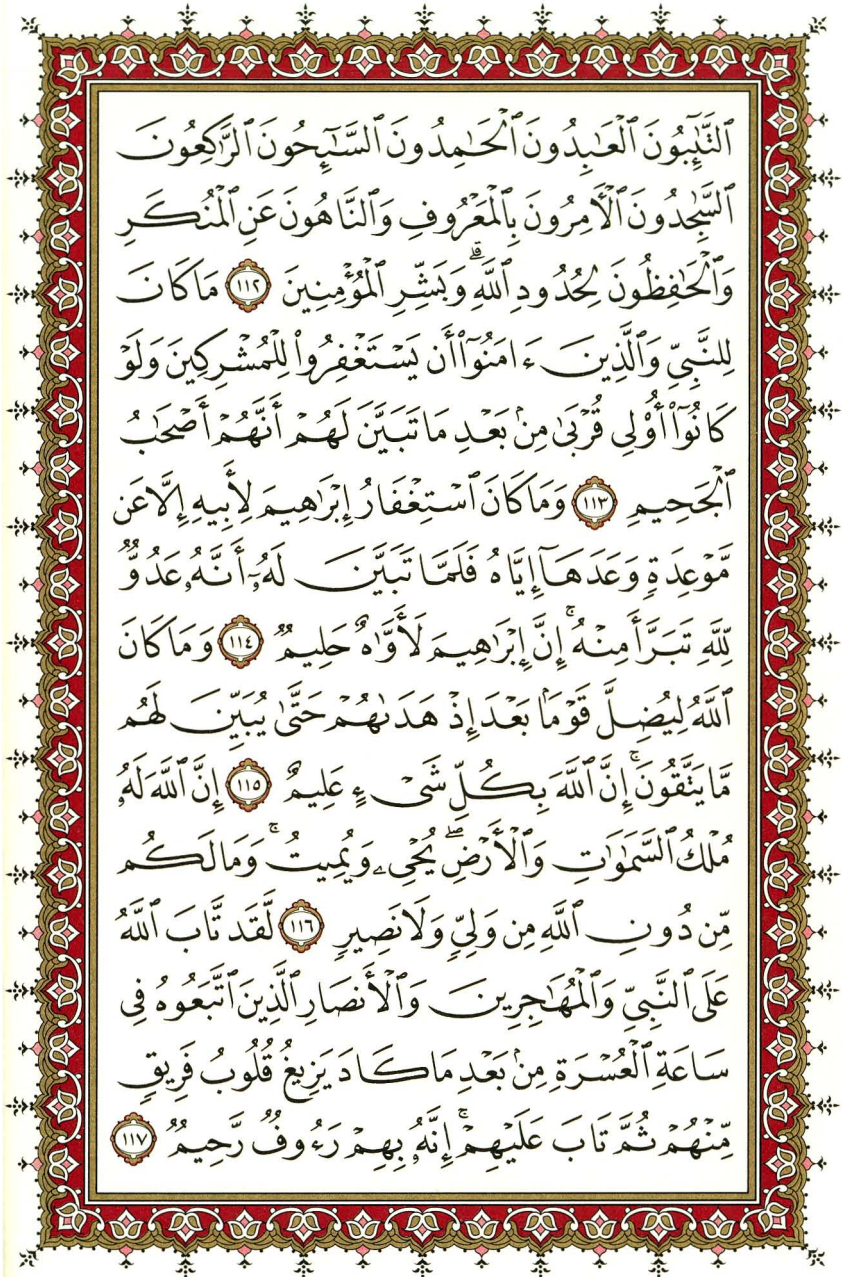 ٱلتَّـٰٓئِبُونَ ٱلْعَـٰبِدُونَ ٱلْحَـٰمِدُونَ ٱلسَّـٰٓئِحُونَ ٱلرَّٰكِعُونَ
ٱلسَّـٰجِدُونَ ٱلْـَٔامِرُونَ بِٱلْمَعْرُوفِ وَٱلنَّاهُونَ عَنِ ٱلْمُنكَرِ
وَٱلْحَـٰفِظُونَ لِحُدُودِ ٱللَّهِ ۗ وَبَشِّرِ ٱلْمُؤْمِنِينَ ١١٢ مَا كَانَ
لِلنَّبِىِّ وَٱلَّذِينَ ءَامَنُوٓا۟ أَن يَسْتَغْفِرُوا۟ لِلْمُشْرِكِينَ وَلَوْ
كَانُوٓا۟ أُو۟لِى قُرْبَىٰ مِنۢ بَعْدِ مَا تَبَيَّنَ لَهُمْ أَنَّهُمْ أَصْحَـٰبُ
ٱلْجَحِيمِ ١١٣ وَمَا كَانَ ٱسْتِغْفَارُ إِبْرَٰهِيمَ لِأَبِيهِ إِلَّا عَن
مَّوْعِدَةٍ وَعَدَهَآ إِيَّاهُ فَلَمَّا تَبَيَّنَ لَهُۥٓ أَنَّهُۥ عَدُوٌّ
لِّلَّهِ تَبَرَّأَ مِنْهُ ۚ إِنَّ إِبْرَٰهِيمَ لَأَوَّٰهٌ حَلِيمٌ ١١٤ وَمَا كَانَ
ٱللَّهُ لِيُضِلَّ قَوْمًۢا بَعْدَ إِذْ هَدَىٰهُمْ حَتَّىٰ يُبَيِّنَ لَهُم
مَّا يَتَّقُونَ ۚ إِنَّ ٱللَّهَ بِكُلِّ شَىْءٍ عَلِيمٌ ١١٥ إِنَّ ٱللَّهَ لَهُۥ
مُلْكُ ٱلسَّمَـٰوَٰتِ وَٱلْأَرْضِ ۖ يُحْىِۦ وَيُمِيتُ ۚ وَمَا لَكُم
مِّن دُونِ ٱللَّهِ مِن وَلِىٍّ وَلَا نَصِيرٍ ١١٦ لَّقَد تَّابَ ٱللَّهُ
عَلَى ٱلنَّبِىِّ وَٱلْمُهَـٰجِرِينَ وَٱلْأَنصَارِ ٱلَّذِينَ ٱتَّبَعُوهُ فِى
سَاعَةِ ٱلْعُسْرَةِ مِنۢ بَعْدِ مَا كَادَ يَزِيغُ قُلُوبُ فَرِيقٍ
مِّنْهُمْ ثُمَّ تَابَ عَلَيْهِمْ ۚ إِنَّهُۥ بِهِمْ رَءُوفٌ رَّحِيمٌ ١١٧